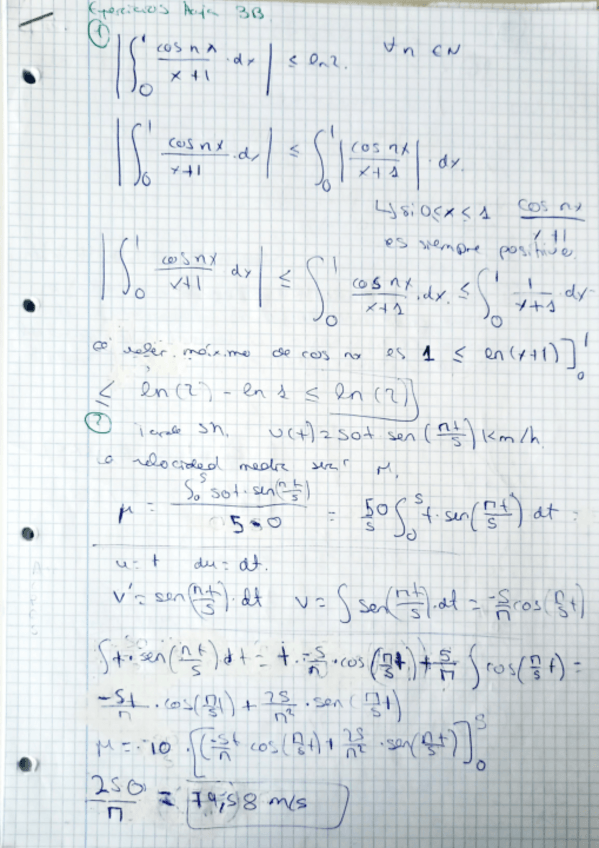 Ejercicios Hoja 3B
① |∫₀¹ cos nx / x+1 · dx| ≤ ln 2. ∀n ∈ N
|∫₀¹ cos nx / x+1 · dx| ≤ ∫₀¹ |cos nx / x+1| · dx.
↳ si 0≤x≤1 cos nx / x+1
es siempre positivo.
|∫₀¹ cos nx / x+1 dx| ≤ ∫₀¹ cos nx / x+1 · dx. ≤ ∫₀¹ 1 / x+1 · dx.
valor máximo de cos nx es 1 ≤ ln(x+1)]₀¹
≤ ln(2) - ln 1 ≤ ln(2)
② tarde 5h. v(t) = 50t sen(πt/5) Km/h.
la velocidad media será μ.
μ = ∫₀⁵ 50t · sen(πt/5) / 5-0 = 50/5 ∫₀⁵ t · sen(πt/5) dt =
u = t du = dt.
v' = sen(πt/5) · dt v = ∫ sen(πt/5) · dt = -5/π cos(π/5 t)
∫ t · sen(πt/5) dt = t · -5/π · cos(π/5 t) + 5/π ∫ cos(π/5 t) =
-5t/π · cos(π/5 t) + 25/π² · sen(π/5 t)
μ = 10 · [(-5t/π cos(π/5 t) + 25/π² · sen(π/5 t)]₀⁵
250/π = 79,58 m/s